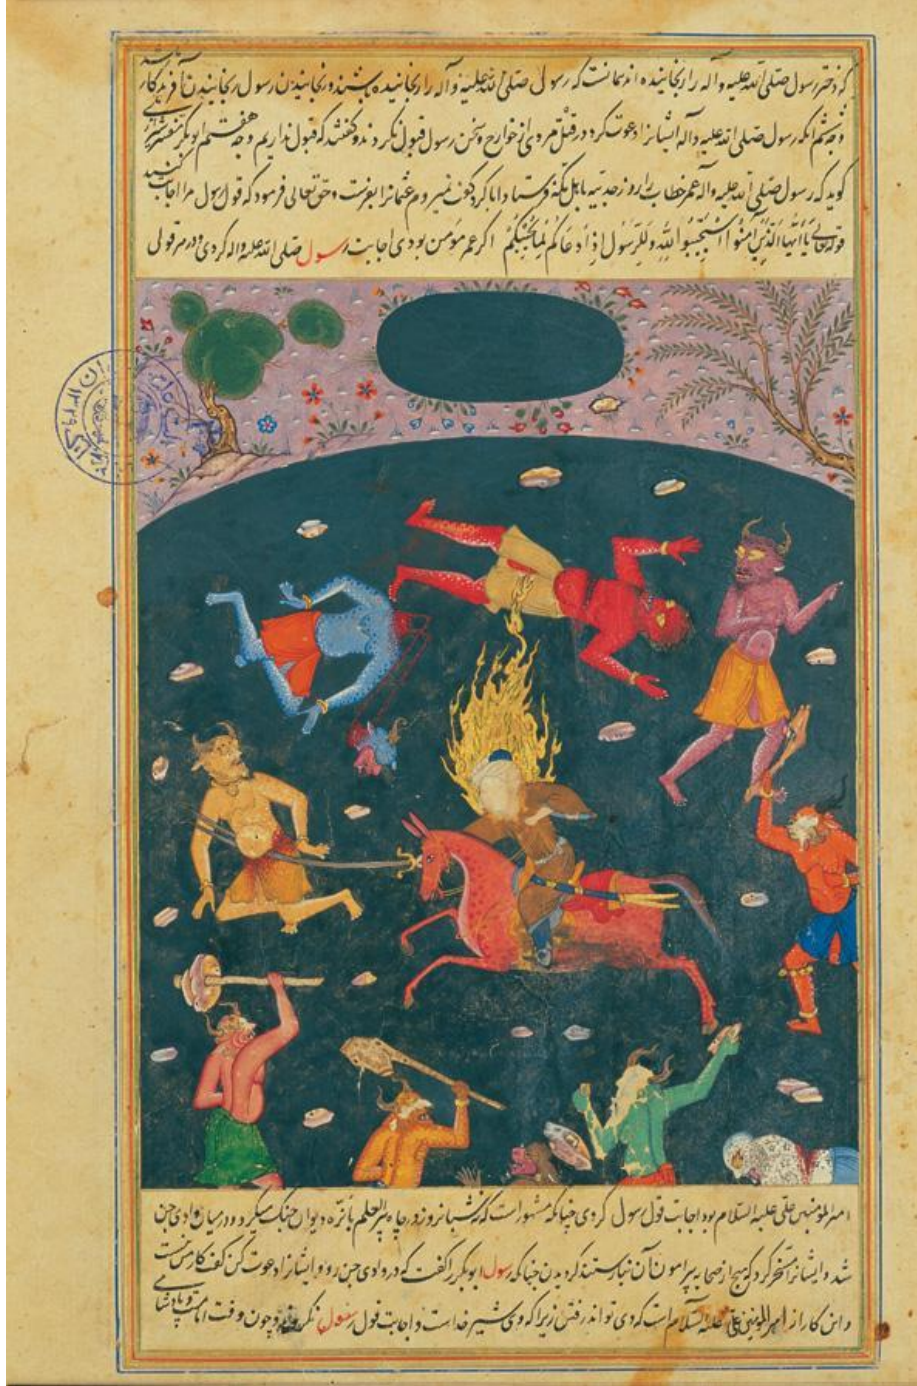 که دختر رسول صلی الله علیه و آله را رنجانیده اند همانست که رسول صلی الله علیه و آله را رنجانیده باشند و رنجانیدن رسول رنجانیدن آفریدکار
وجه ششم آنکه رسول صلی الله علیه و آله ایشانرا دعوت کرد در قتل مردی از خوارج و سخن رسول قبول نکردند و کفتند که قبول نداریم وجه هفتم ابوبکر
کوید که رسول صلی الله علیه و آله عمر خطاب را روز حدیبیه باهل مکه فرستاد ابا کرد کفت نمیروم عثمانرا بفرست و حق تعالی فرمود که قول رسول مرا اجابت کنید
قوله تعالی یَا أَیُّهَا الَّذِینَ آمَنُوا اسْتَجِیبُوا لِلّٰهِ وَلِلرَّسُولِ إِذَا دَعَاکُمْ لِمَا یُحْیِیکُمْ اکر عمر مؤمن بودی اجابت رسول صلی الله علیه و اله کردی و در هر قولی
امیرالمؤمنین علی علیه السلام بود اجابت قول رسول کردی چنانکه مشهور است که سه شبانروز در چاه بیرالعلم با نره دیوان جنک میکرد و در میان وادی جن
شد و ایشانرا مسخر کرد که هیچ از صحابه پیرامون آن نیارستند کردیدن چنانکه رسول ابوبکر را کفت که در وادی جن رو و ایشانرا دعوت کن کفت کار من نیست
و این کار از امیرالمؤمنین علی علیه السلام است که وی تواند رفتن زیرا که وی شیر خداست و اجابت قول رسول نکردند و چون وقت امامت و پادشاهی